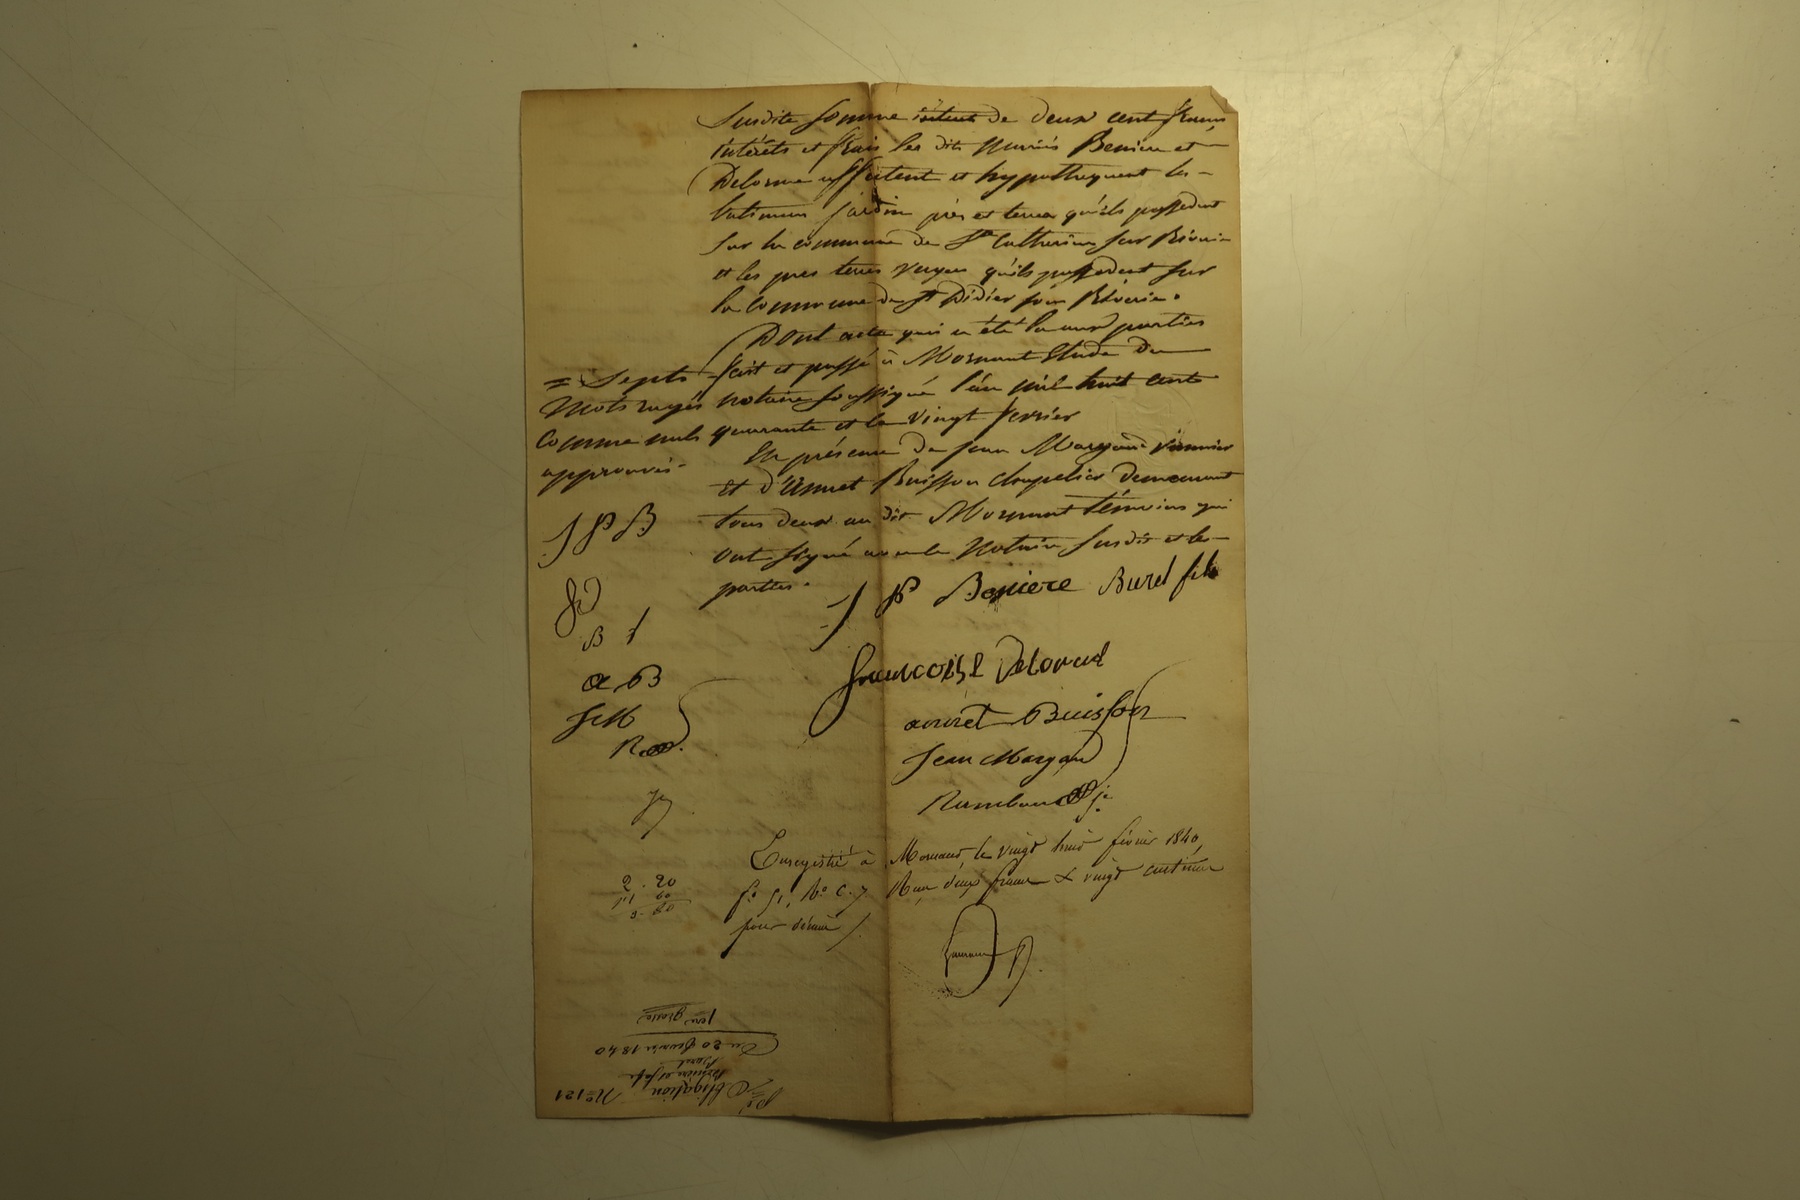 Susdite somme de deux cent francs
intérêts et frais les dits Mariés Beniere et
Delorme affectent et hypothequent les
batimens jardin prés et terres qu'ils possedent
sur la commune de Ste Catherine sur Riverie
et les pres terres verger qu'ils possedent sur
la Commune de St Didier sous Riverie.
Dont acte qui a été lu aux parties
fait et passé à Mornant Etude du
notaire soussigné l'an mil huit cent
quarante et le vingt fevrier
En présence de Jean Margand
et d'Annet Buisson chapelier demeurant
tous deux au dit Mornant témoins qui
ont signé avec le Notaire susdit et les
parties.
= Septs
Mots rayés
comme nuls
approuvés
J P B
fD
B f
a B
J M
R
J P Beniere Burel fils
francoise Delorme
annet Buisson
Jean Margand
Enregistré à Mornant, le vingt huit février 1840,
fo 51, Ro C. 7 Reçu deux francs & vingt centimes
pour décime
2. 20
Obligation No 121
Beniere et
Burel
Du 20 fevrier 1840
1ere grosse